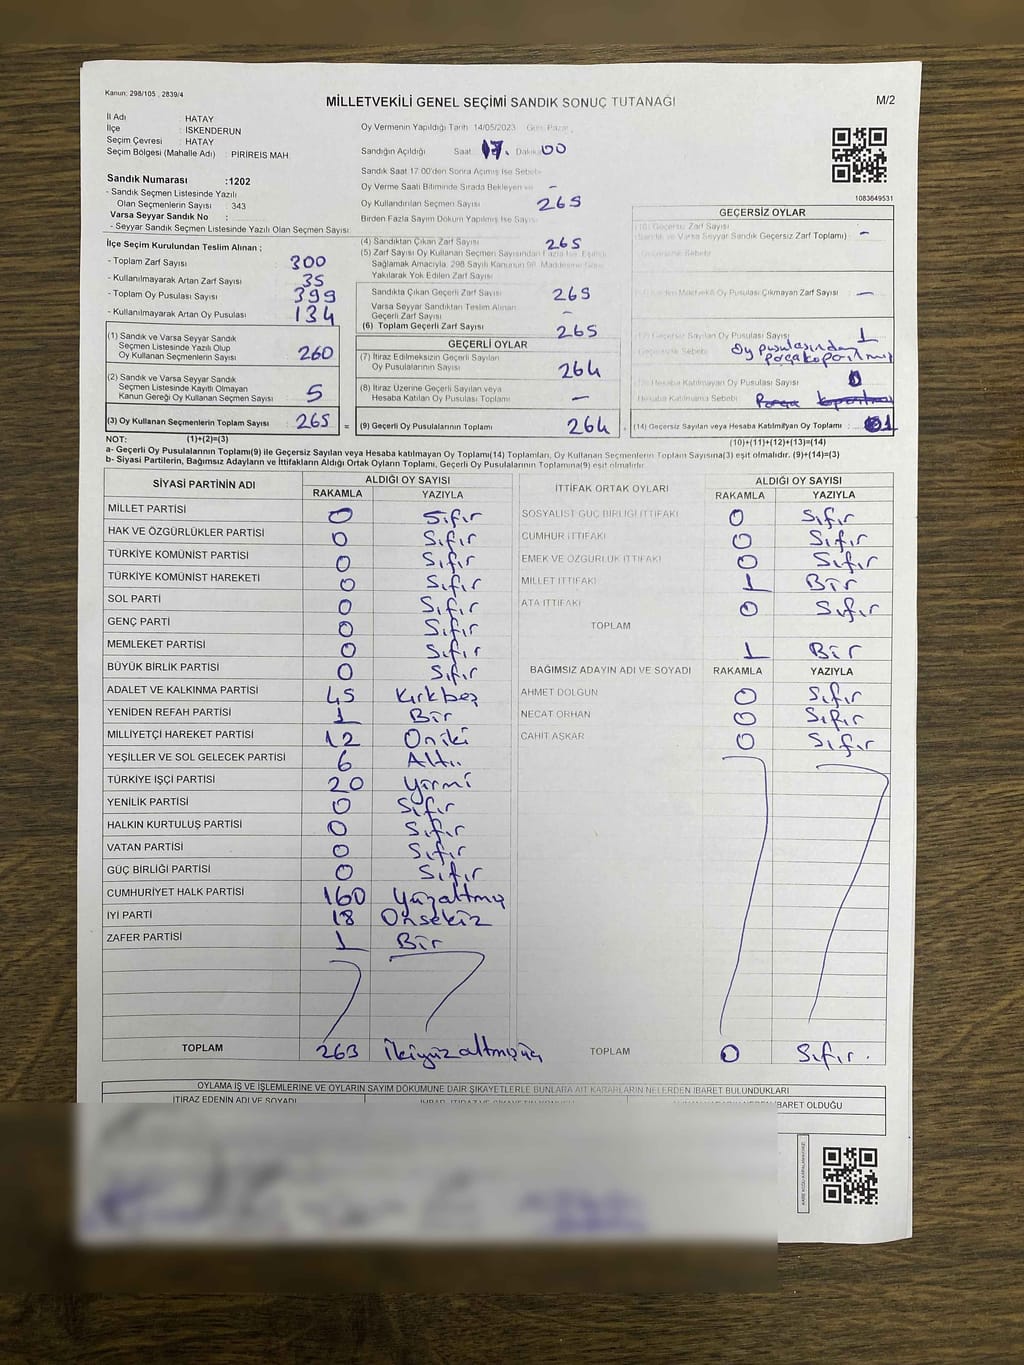 Kanun: 298/105 , 2839/4
MİLLETVEKİLİ GENEL SEÇİMİ SANDIK SONUÇ TUTANAĞI
M/2
İl Adı HATAY
İlçe : İSKENDERUN
Seçim Çevresi : HATAY
Seçim Bölgesi (Mahalle Adı) : PİRİREİS MAH.
Sandık Numarası :1202
- Sandık Seçmen Listesinde Yazılı
Olan Seçmenlerin Sayısı : 343
Varsa Seyyar Sandık No :
- Seyyar Sandık Seçmen Listesinde Yazılı Olan Seçmen Sayısı:
Oy Vermenin Yapıldığı Tarih 14/05/2023 Gün: Pazar
Sandığın Açıldığı Saat: 17. Dakika 00
Sandık Saat 17.00'den Sonra Açılmış İse Sebebi
Oy Verme Saati Bitiminde Sırada Bekleyen -
Oy Kullandırılan Seçmen Sayısı 265
Birden Fazla Sayım Döküm Yapılmış İse Sayısı
1083649531
İlçe Seçim Kurulundan Teslim Alınan ;
- Toplam Zarf Sayısı 300
- Kullanılmayarak Artan Zarf Sayısı 35
- Toplam Oy Pusulası Sayısı 399
- Kullanılmayarak Artan Oy Pusulası 134
(1) Sandık ve Varsa Seyyar Sandık
Seçmen Listesinde Yazılı Olup
Oy Kullanan Seçmenlerin Sayısı 260
(2) Sandık ve Varsa Seyyar Sandık
Seçmen Listesinde Kayıtlı Olmayan
Kanun Gereği Oy Kullanan Seçmen Sayısı 5
(3) Oy Kullanan Seçmenlerin Toplam Sayısı 265 =
(4) Sandıktan Çıkan Zarf Sayısı 265
(5) Zarf Sayısı Oy Kullanan Seçmen Sayısından Fazla İse, Eşitliği
Sağlamak Amacıyla, 298 Sayılı Kanunun 98. Maddesine Göre
Yakılarak Yok Edilen Zarf Sayısı
Sandıkta Çıkan Geçerli Zarf Sayısı 265
Varsa Seyyar Sandıktan Teslim Alınan
Geçerli Zarf Sayısı -
(6) Toplam Geçerli Zarf Sayısı 265
GEÇERLİ OYLAR
(7) İtiraz Edilmeksizin Geçerli Sayılan
Oy Pusulalarının Sayısı 264
(8) İtiraz Üzerine Geçerli Sayılan veya
Hesaba Katılan Oy Pusulası Toplamı -
(9) Geçerli Oy Pusulalarının Toplamı 264
GEÇERSİZ OYLAR
(10) Geçersiz Zarf Sayısı
(Sandık ve Varsa Seyyar Sandık Geçersiz Zarf Toplamı) -
Geçersizlik Sebebi:
Milletvekili Oy Pusulası Çıkmayan Zarf Sayısı -
Geçersiz Sayılan Oy Pusulası Sayısı 1
Geçersizlik Sebebi Oy pusulasından
parça koparılmış
Hesaba Katılmayan Oy Pusulası Sayısı 0
Hesaba Katılmama Sebebi
(14) Geçersiz Sayılan veya Hesaba Katılmayan Oy Toplamı : 1
NOT: (1)+(2)=(3)
(10)+(11)+(12)+(13)=(14)
a- Geçerli Oy Pusulalarının Toplamı(9) ile Geçersiz Sayılan veya Hesaba katılmayan Oy Toplamı(14) Toplamları, Oy Kullanan Seçmenlerin Toplam Sayısına(3) eşit olmalıdır. (9)+(14)=(3)
b- Siyasi Partilerin, Bağımsız Adayların ve İttifakların Aldığı Ortak Oyların Toplamı, Geçerli Oy Pusulalarının Toplamına(9) eşit olmalıdır.
SİYASİ PARTİNİN ADI ALDIĞI OY SAYISI
RAKAMLA YAZIYLA
MİLLET PARTİSİ 0 Sıfır
HAK VE ÖZGÜRLÜKLER PARTİSİ 0 Sıfır
TÜRKİYE KOMÜNİST PARTİSİ 0 Sıfır
TÜRKİYE KOMÜNİST HAREKETİ 0 Sıfır
SOL PARTİ 0 Sıfır
GENÇ PARTİ 0 Sıfır
MEMLEKET PARTİSİ 0 Sıfır
BÜYÜK BİRLİK PARTİSİ 0 Sıfır
ADALET VE KALKINMA PARTİSİ 45 Kırkbeş
YENİDEN REFAH PARTİSİ 1 Bir
MİLLİYETÇİ HAREKET PARTİSİ 12 Oniki
YEŞİLLER VE SOL GELECEK PARTİSİ 6 Altı
TÜRKİYE İŞÇİ PARTİSİ 20 Yirmi
YENİLİK PARTİSİ 0 Sıfır
HALKIN KURTULUŞ PARTİSİ 0 Sıfır
VATAN PARTİSİ 0 Sıfır
GÜÇ BİRLİĞİ PARTİSİ 0 Sıfır
CUMHURİYET HALK PARTİSİ 160 Yüzaltmış
İYİ PARTİ 18 Onsekiz
ZAFER PARTİSİ 1 Bir
TOPLAM 263 İkiyüzaltmışüç
İTTİFAK ORTAK OYLARI ALDIĞI OY SAYISI
RAKAMLA YAZIYLA
SOSYALİST GÜÇ BİRLİĞİ İTTİFAKI 0 Sıfır
CUMHUR İTTİFAKI 0 Sıfır
EMEK VE ÖZGÜRLÜK İTTİFAKI 0 Sıfır
MİLLET İTTİFAKI 1 Bir
ATA İTTİFAKI 0 Sıfır
TOPLAM 1 Bir
BAĞIMSIZ ADAYIN ADI VE SOYADI RAKAMLA YAZIYLA
AHMET DOLGUN 0 Sıfır
NECAT ORHAN 0 Sıfır
CAHİT AŞKAR 0 Sıfır
TOPLAM 0 Sıfır.
OYLAMA İŞ VE İŞLEMLERİNE VE OYLARIN SAYIM DÖKÜMÜNE DAİR ŞİKAYETLERLE BUNLARA AİT KARARLARIN NELERDEN İBARET BULUNDUKLARI
İTİRAZ EDENİN ADI VE SOYADI
İBARET OLDUĞU